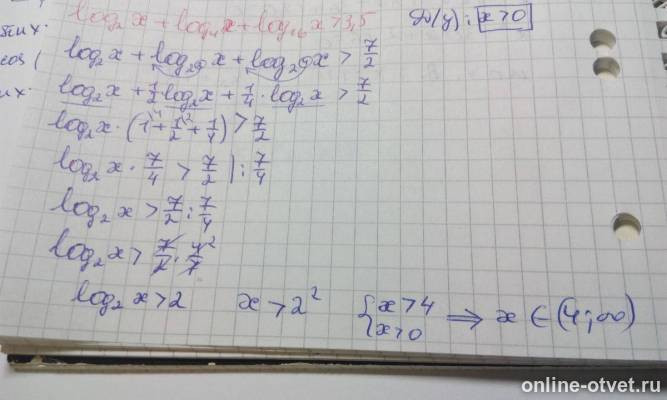 log₂x + log₄x + log₁₆x > 3,5
D(y): x>0
sin x.
cos (
log₂x + log₂²x + log₂⁴x > 7/2
их.
log₂x + 1/2 log₂x + 1/4 · log₂x > 7/2
log₂x · (1 + 1/2 + 1/4) > 7/2
log₂x · 7/4 > 7/2 | : 7/4
log₂x > 7/2 : 7/4
log₂x > 7/2 · 4²/7
log₂x > 2 x > 2² {x>4 x>0 ⇒ x ∈ (4;∞)
online-otvet.ru